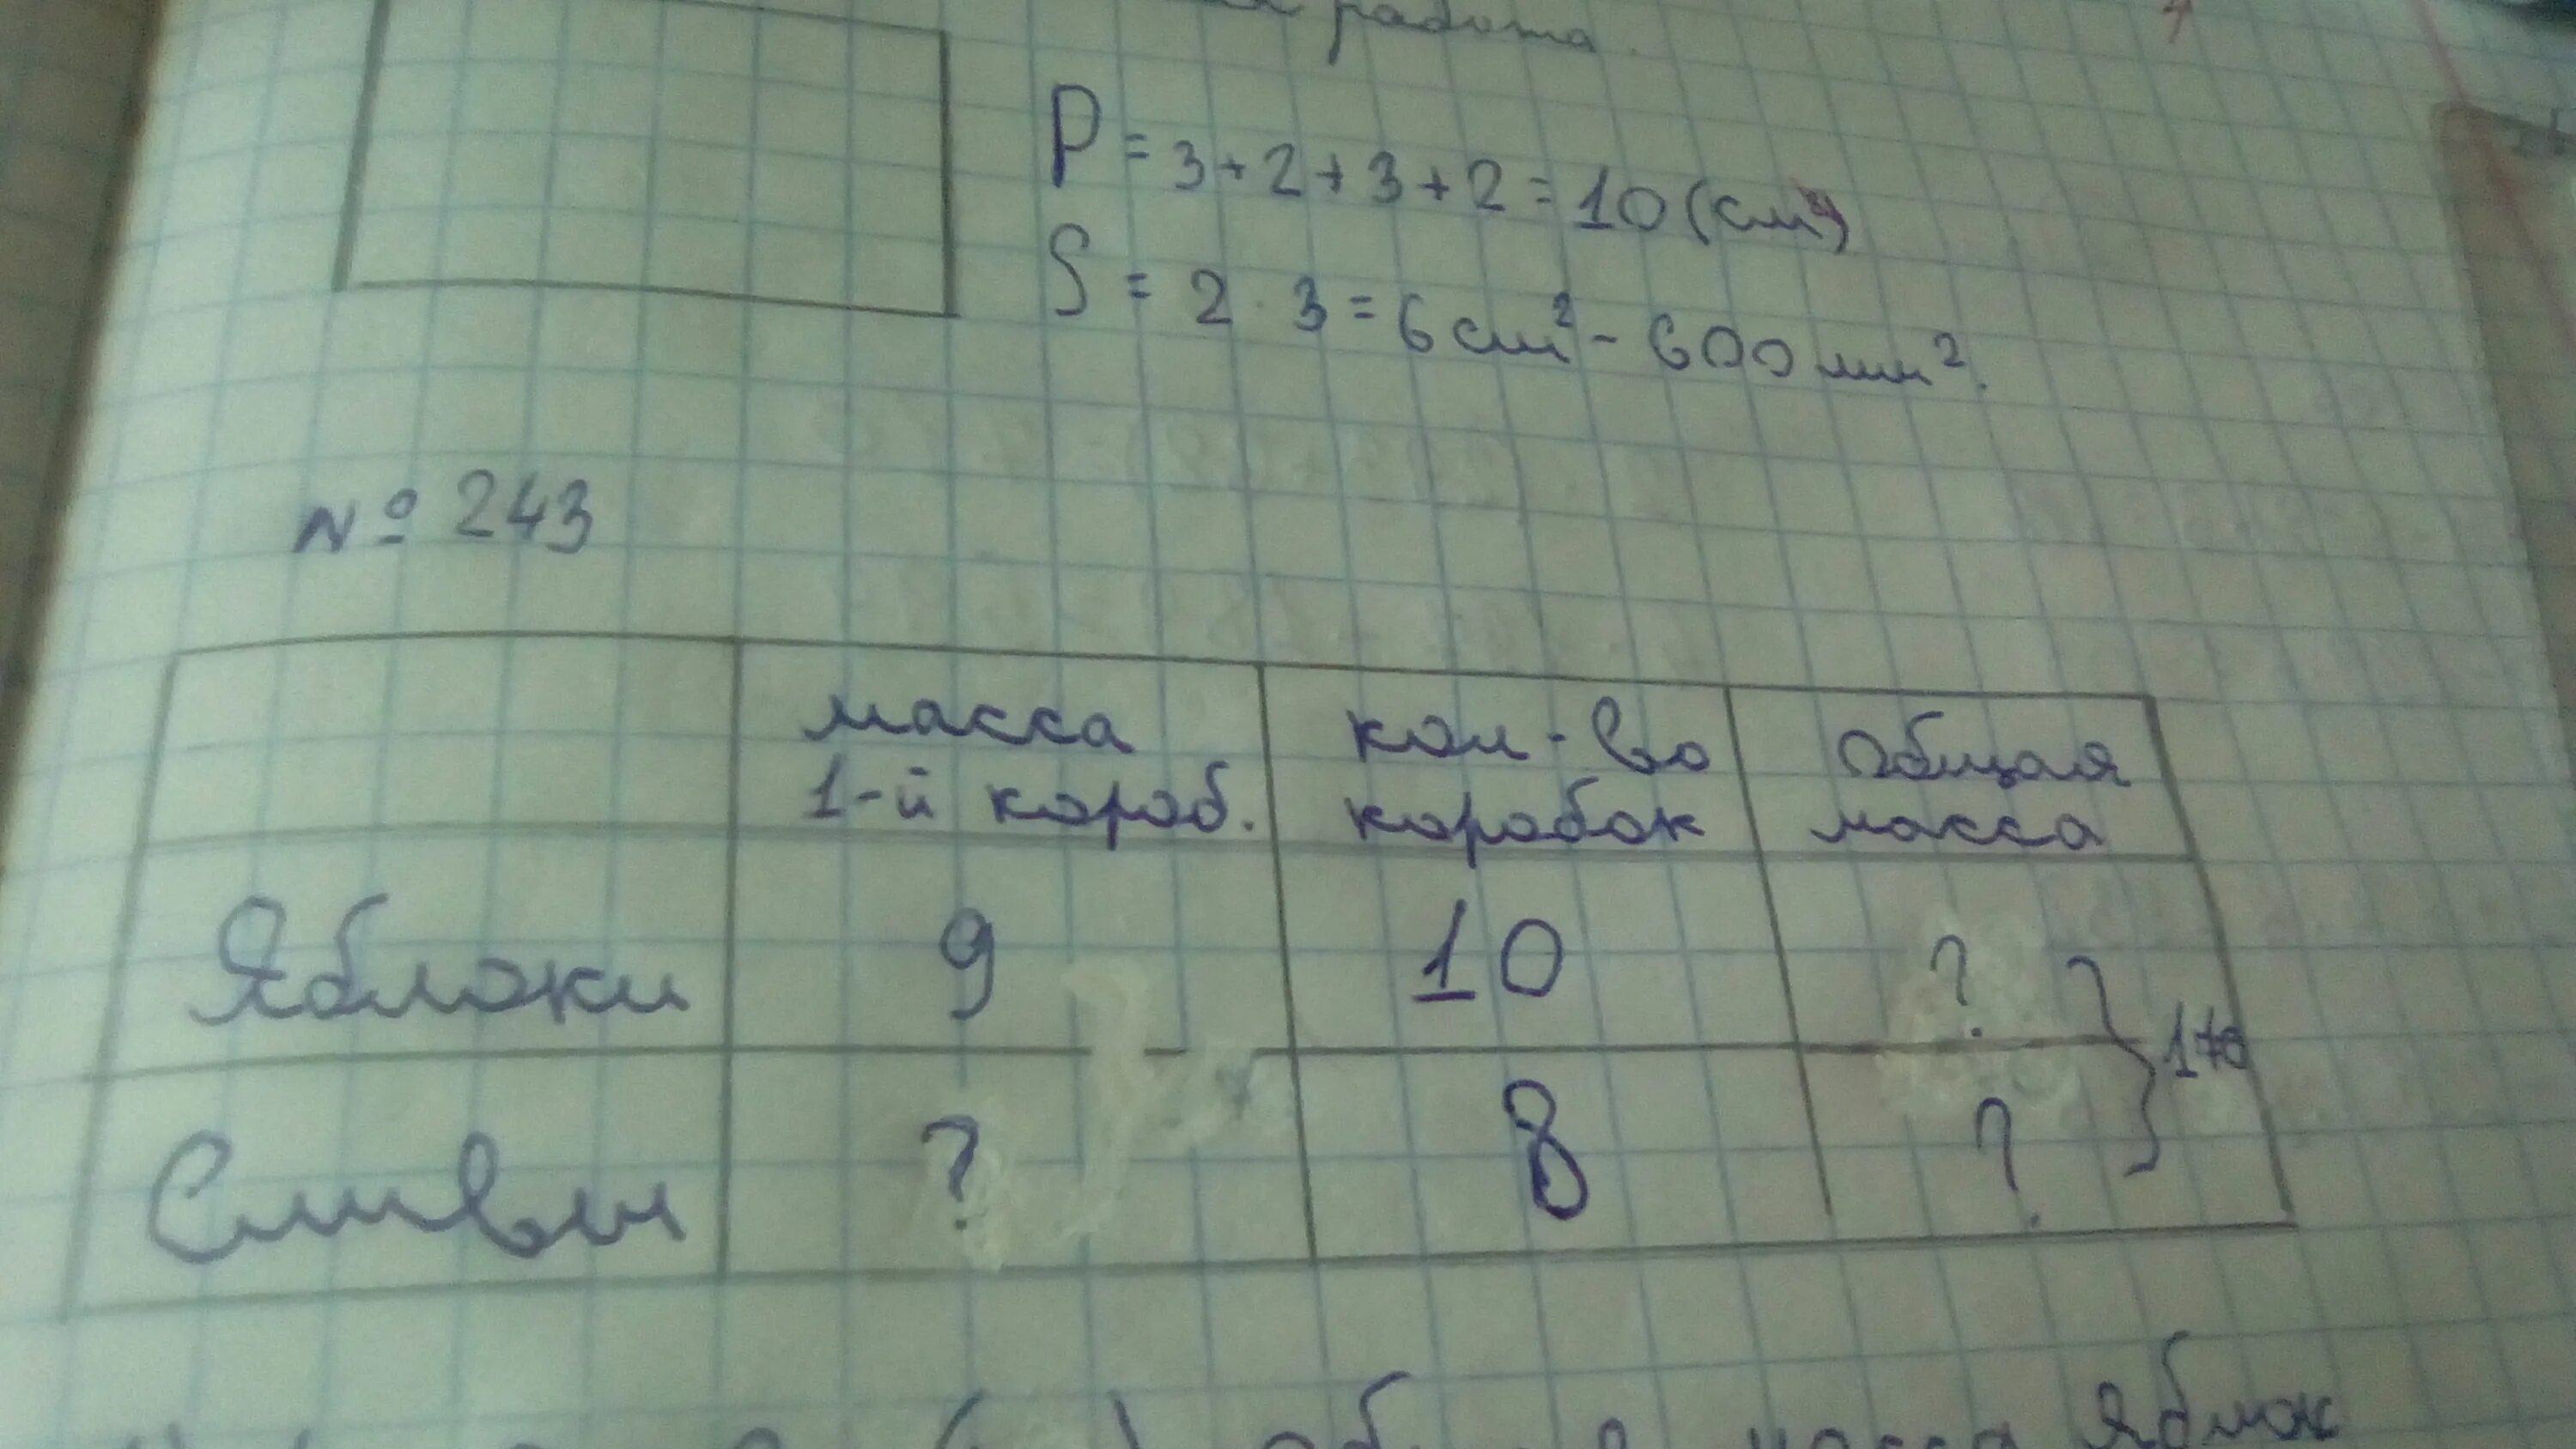 работа.
P = 3+2+3+2 = 10 (см)
S = 2 · 3 = 6 см² - 600 мм².
№ 243
масса 1-й короб.
кол-во коробок
общая масса
Яблоки 9 10 ?
Сливы ? 8 ?
масса яблок